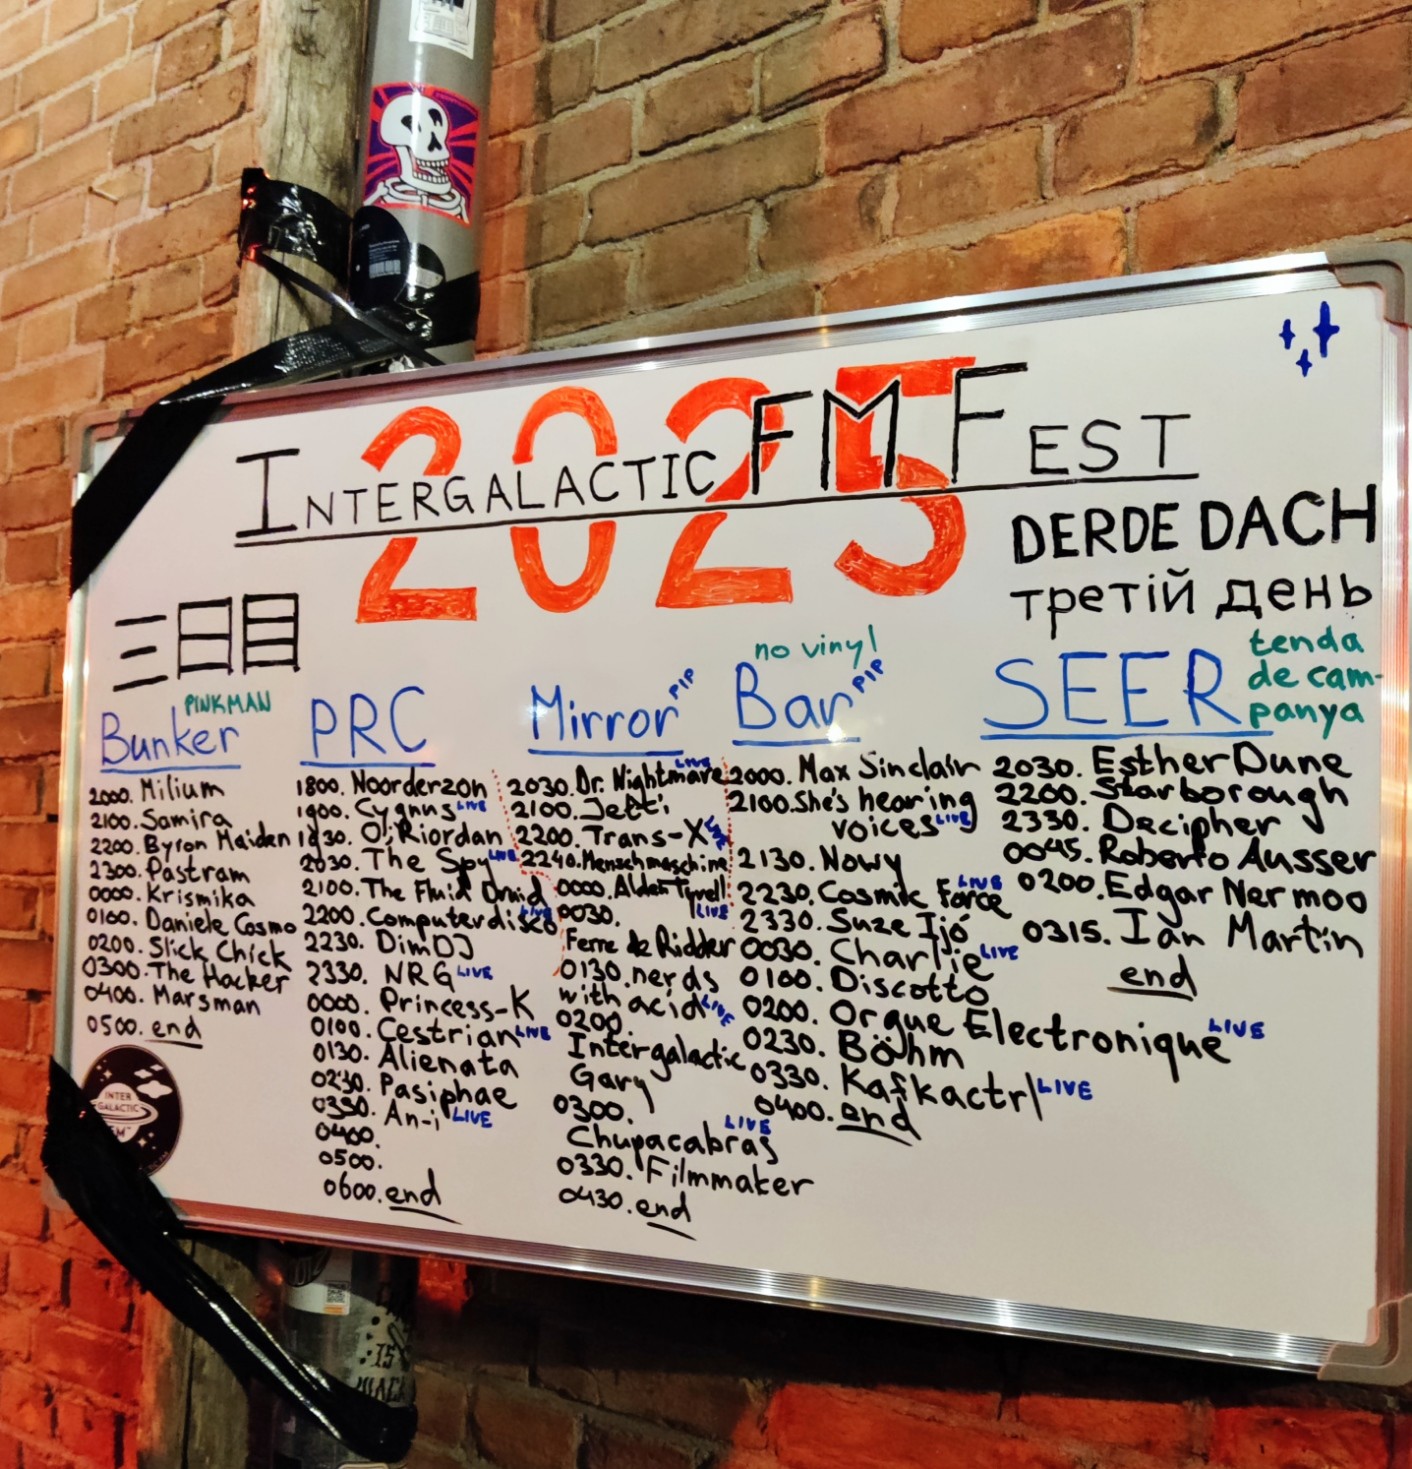 2025
INTERGALACTIC FM FEST
DERDE DACH
третій день
三日目
PINKMAN
Bunker
2000. Milium
2100. Samira
2200. Byron Maiden
2300. Pastram
0000. Krismika
0100. Daniele Cosmo
0200. Slick Chick
0300. The Hacker
0400. Marsman
0500. end
INTER
GALACTIC
PRC
1800. Noorderzon
1900. Cygnus LIVE
1930. O'Riordan
2030. The Spy LIVE
2100. The Fluid Druid
2200. Computerdisco LIVE
2230. DimDJ
2330. NRG LIVE
0000. Princess-K
0100. Cestrian LIVE
0130. Alienata
0230. Pasiphae
0330. An-i LIVE
0400.
0500.
0600. end
Mirror PIP
2030. Dr. Nightmare LIVE
2100. Jetti
2200. Trans-X LIVE
2240. Menschmaschine
0000. Alden Tyrell LIVE
0030.
Ferre de Ridder
0130. nerds
with acid LIVE
0200.
Intergalactic
Gary
0300.
Chupacabras LIVE
0330. Filmmaker
0430. end
no vinyl
Bar PIP
2000. Max Sinclair
2100. She's hearing
voices LIVE
2130. Nowy
2230. Cosmic Force LIVE
2330. Suze Ijó
0030. Charlie LIVE
0100. Discotto
0200. Orgue Electronique LIVE
0230. Böhm
0330. Kafkactrl LIVE
0400. end
SEER
tenda
de cam-
panya
2030. Esther Dune
2200. Starborough
2330. Decipher
0045. Roberto Ausser
0200. Edgar Nermoo
0315. Ian Martin
end